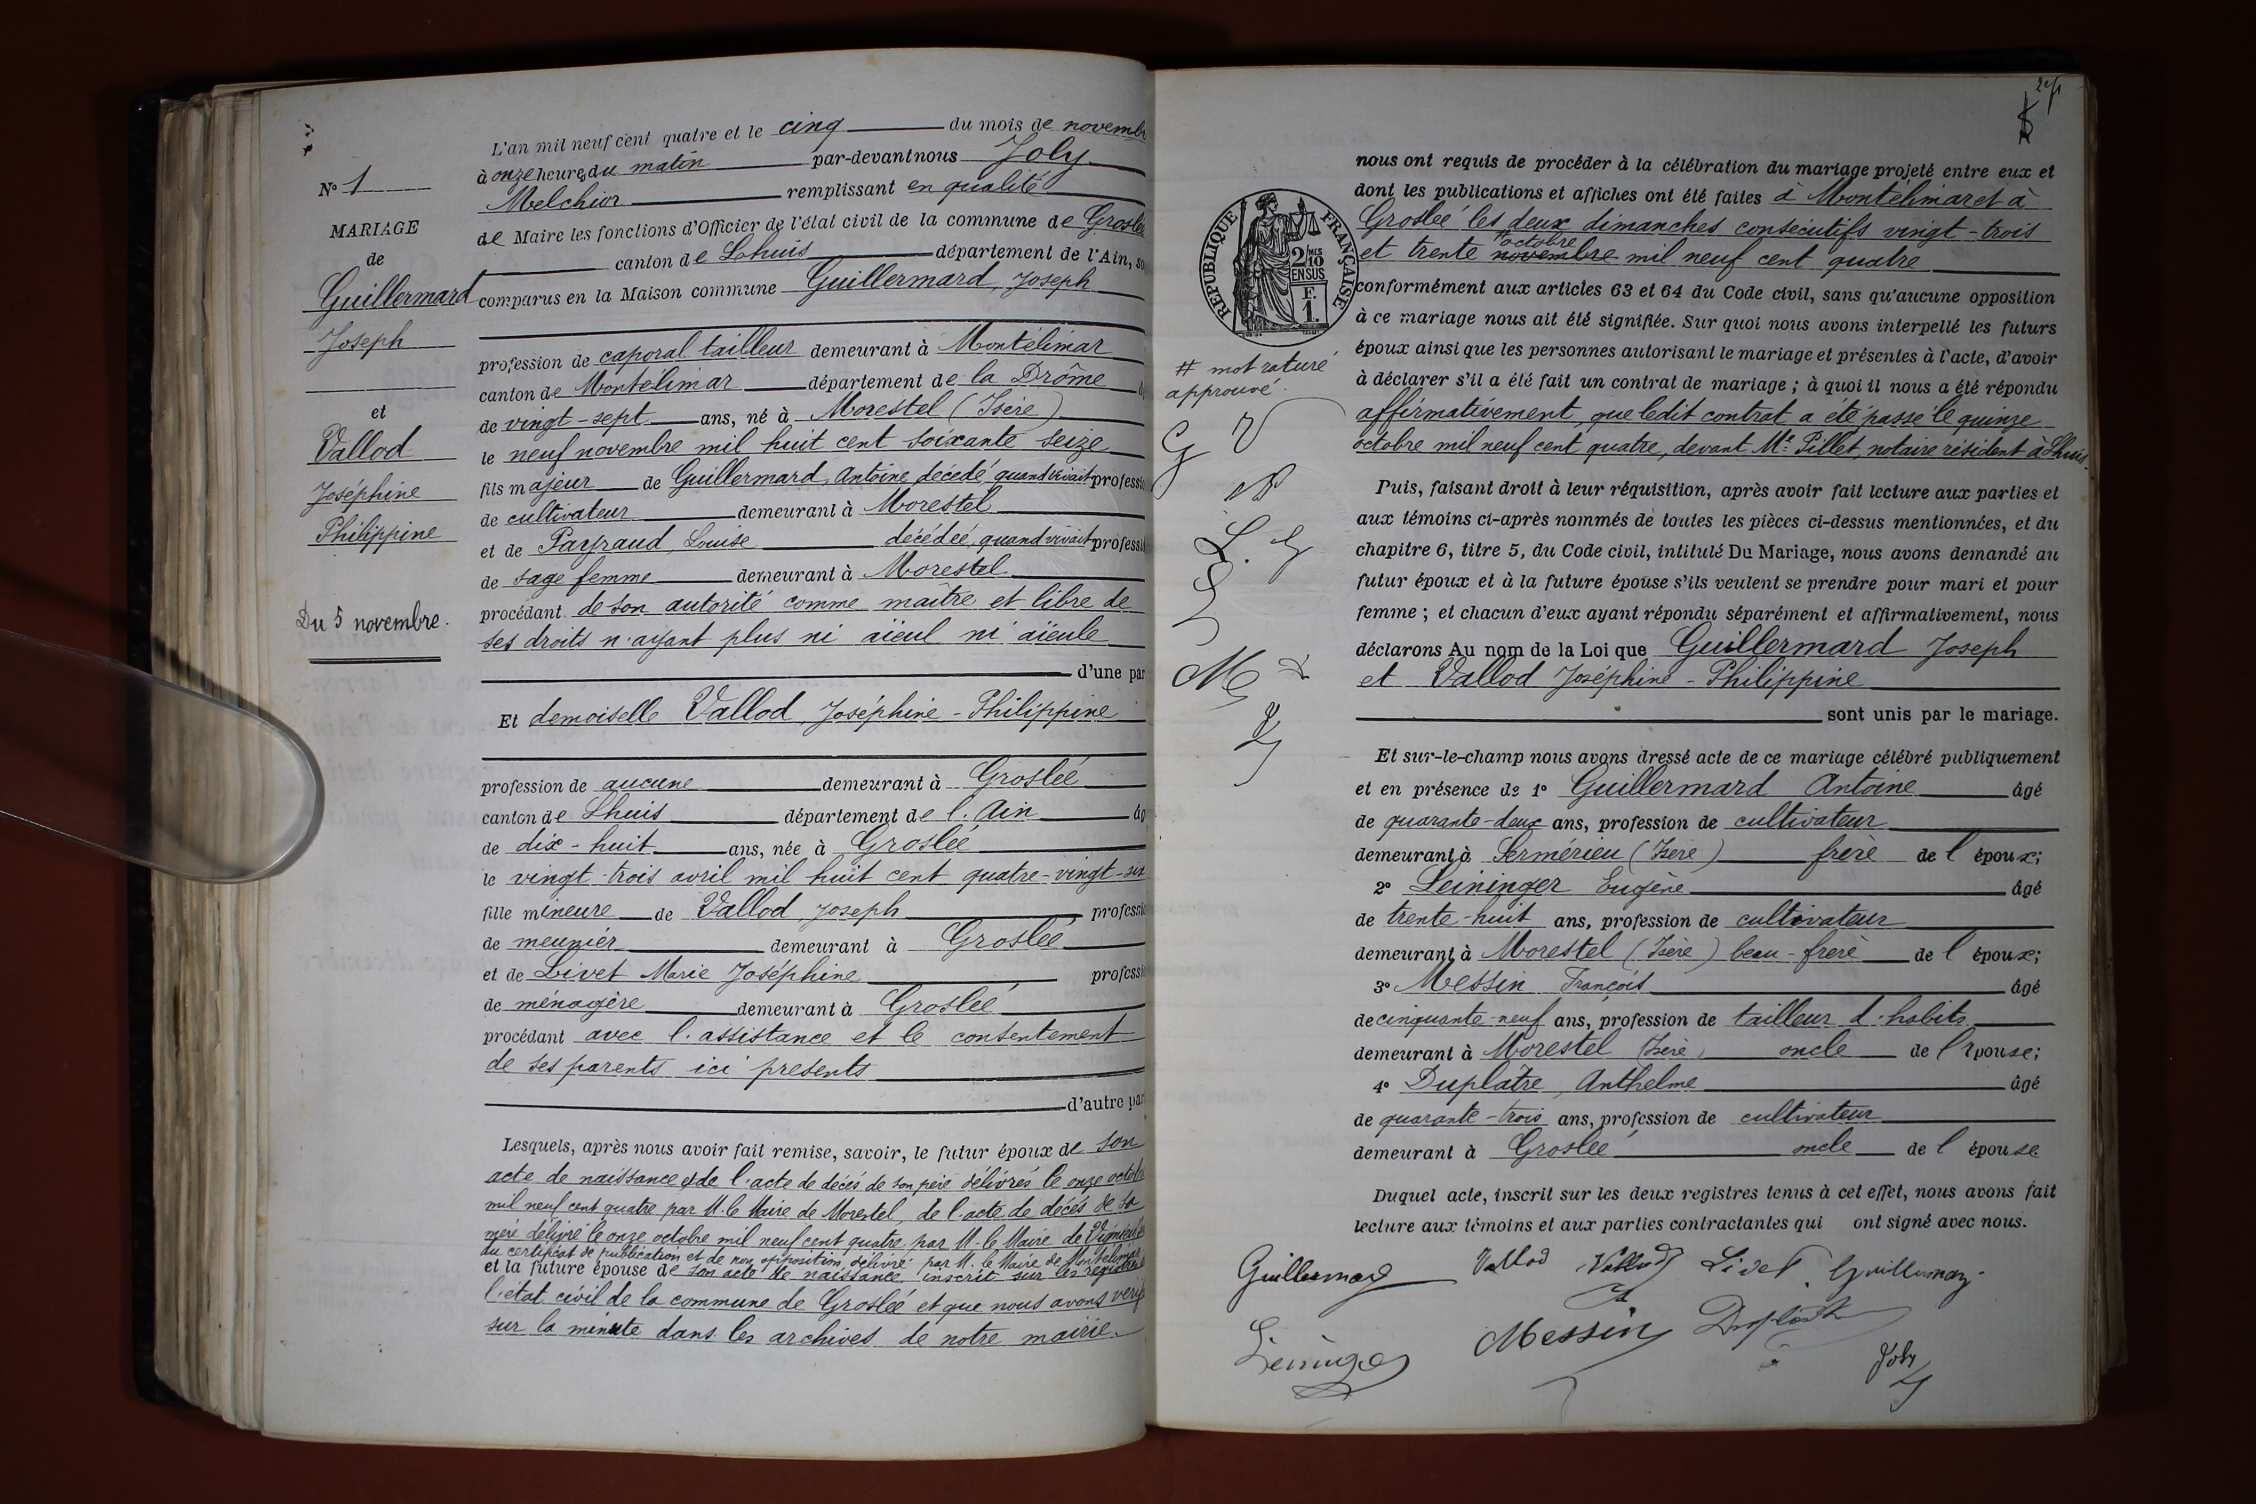 N° 1
MARIAGE
de
Guillermard
Joseph
et
Vallod
Joséphine
Philippine
Du 5 novembre.
L'an mil neuf cent quatre et le cinq du mois de novembr
à onze heures du matin par-devant nous Joly
Melchior remplissant en qualité
de Maire les fonctions d'Officier de l'état civil de la commune de Groslée
canton de Lhuis département de l'Ain, so
comparus en la Maison commune Guillermard, Joseph
profession de caporal tailleur demeurant à Montélimar
canton de Montélimar département de la Drôme
de vingt-sept ans, né à Morestel (Isère)
le neuf novembre mil huit cent soixante seize
fils majeur de Guillermard, Antoine décédé, quand vivait professio
de cultivateur demeurant à Morestel
et de Payraud, Louise décédée, quand vivait professi
de sage femme demeurant à Morestel
procédant de son autorité comme maître et libre de
ses droits n'ayant plus ni aïeul ni aïeule
d'une par
Et demoiselle Vallod, Joséphine-Philippine
profession de aucune demeurant à Groslée
canton de Lhuis département de l'Ain âg
de dix-huit ans, née à Groslée
le vingt-trois avril mil huit cent quatre-vingt-six
fille mineure de Vallod Joseph professio
de meunier demeurant à Groslée
et de Livet Marie Joséphine professi
de ménagère demeurant à Groslée
procédant avec l'assistance et le consentement
de ses parents ici présents
d'autre par
Lesquels, après nous avoir fait remise, savoir, le futur époux de son
acte de naissance & de l'acte de décès de son père délivrés le onze octobre
mil neuf cent quatre par M. le Maire de Morestel, de l'acte de décès de sa
mère délivré le onze octobre mil neuf cent quatre par M. le Maire de
du certificat de publication et de non opposition délivré par M. le Maire de Montélimar
et la future épouse de son acte de naissance inscrit sur les registres
l'état civil de la commune de Groslée et que nous avons vérif
sur la minute dans les archives de notre mairie.
RÉPUBLIQUE FRANÇAISE
2/10 MES
EN SUS
F.
1.
# mot raturé
approuvé.
nous ont requis de procéder à la célébration du mariage projeté entre eux et
dont les publications et affiches ont été faites à Montélimar et à
Groslée les deux dimanches consécutifs vingt-trois
# octobre
et trente novembre mil neuf cent quatre
conformément aux articles 63 et 64 du Code civil, sans qu'aucune opposition
à ce mariage nous ait été signifiée. Sur quoi nous avons interpellé les futurs
époux ainsi que les personnes autorisant le mariage et présentes à l'acte, d'avoir
à déclarer s'il a été fait un contrat de mariage ; à quoi il nous a été répondu
affirmativement, que ledit contrat a été passé le quinze
octobre mil neuf cent quatre, devant Me Pillet, notaire résident à Lhuis.
Puis, faisant droit à leur réquisition, après avoir fait lecture aux parties et
aux témoins ci-après nommés de toutes les pièces ci-dessus mentionnées, et du
chapitre 6, titre 5, du Code civil, intitulé Du Mariage, nous avons demandé au
futur époux et à la future épouse s'ils veulent se prendre pour mari et pour
femme ; et chacun d'eux ayant répondu séparément et affirmativement, nous
déclarons Au nom de la Loi que Guillermard Joseph
et Vallod Joséphine-Philippine
sont unis par le mariage.
Et sur-le-champ nous avons dressé acte de ce mariage célébré publiquement
et en présence de 1° Guillermard Antoine âgé
de quarante-deux ans, profession de cultivateur
demeurant à Sermérieu (Isère) frère de l'époux;
2° Leininger Eugène âgé
de trente-huit ans, profession de cultivateur
demeurant à Morestel (Isère) beau-frère de l'époux;
3° Messin François âgé
de cinquante-neuf ans, profession de tailleur d'habits
demeurant à Morestel (Isère) oncle de l'épouse;
4° Duplâtre, Anthelme âgé
de quarante-trois ans, profession de cultivateur
demeurant à Groslée oncle de l'épouse
Duquel acte, inscrit sur les deux registres tenus à cet effet, nous avons fait
lecture aux témoins et aux parties contractantes qui ont signé avec nous.
Guillermard Vallod Vallod Livet Guillermard
Leininger Messin Duplâtre Joly